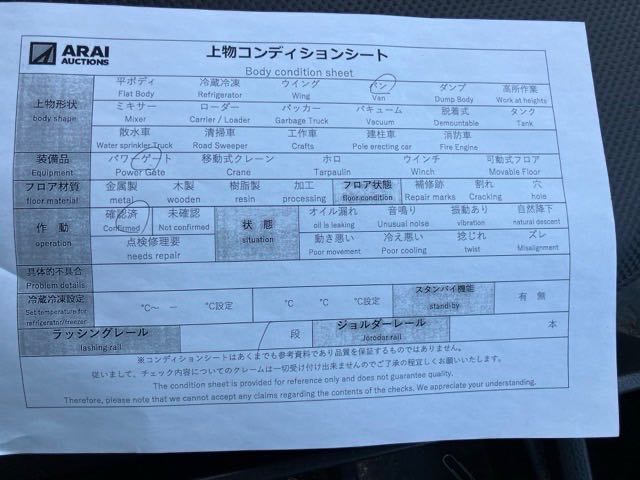 ARAI
AUCTIONS
上物コンディションシート
Body condition sheet
上物形状
body shape
平ボディ 冷蔵冷凍 ウイング バン ダンプ 高所作業
Flat Body Refrigerator Wing Van Dump Body Work at heights
ミキサー ローダー パッカー バキューム 脱着式 タンク
Mixer Carrier / Loader Garbage Truck Vacuum Demountable Tank
散水車 清掃車 工作車 建柱車 消防車
Water sprinkler Truck Road Sweeper Crafts Pole erecting car Fire Engine
装備品 パワーゲート 移動式クレーン ホロ ウインチ 可動式フロア
Equipment Power Gate Crane Tarpaulin Winch Movable Floor
フロア材質 金属製 木製 樹脂製 加工 フロア状態 補修跡 割れ 穴
floor material metal wooden resin processing floor condition Repair marks Cracking hole
作動 確認済 未確認 状態 オイル漏れ 音鳴り 振動あり 自然降下
operation Confirmed Not confirmed situation oil is leaking Unusual noise vibration natural descent
点検修理要 動き悪い 冷え悪い 捻じれ ズレ
needs repair Poor movement Poor cooling twist Misalignment
具体的不具合
Problem details
冷蔵冷凍設定 ℃～ － ℃設定 ℃ ℃ ℃設定 スタンバイ機能 有 無
Set temperature for refrigerator/freezer stand-by
ラッシングレール / 段 ジョルダーレール 本
lashing rail Jorodar rail
※コンディションシートはあくまでも参考資料であり品質を保証するものではありません。
従いまして、チェック内容についてのクレームは一切受け付け出来ませんのでご了承の程宜しくお願いいたします。
The condition sheet is provided for reference only and does not guarantee quality.
Therefore, please note that we cannot accept any claims regarding the contents of the checks. We appreciate your understanding.